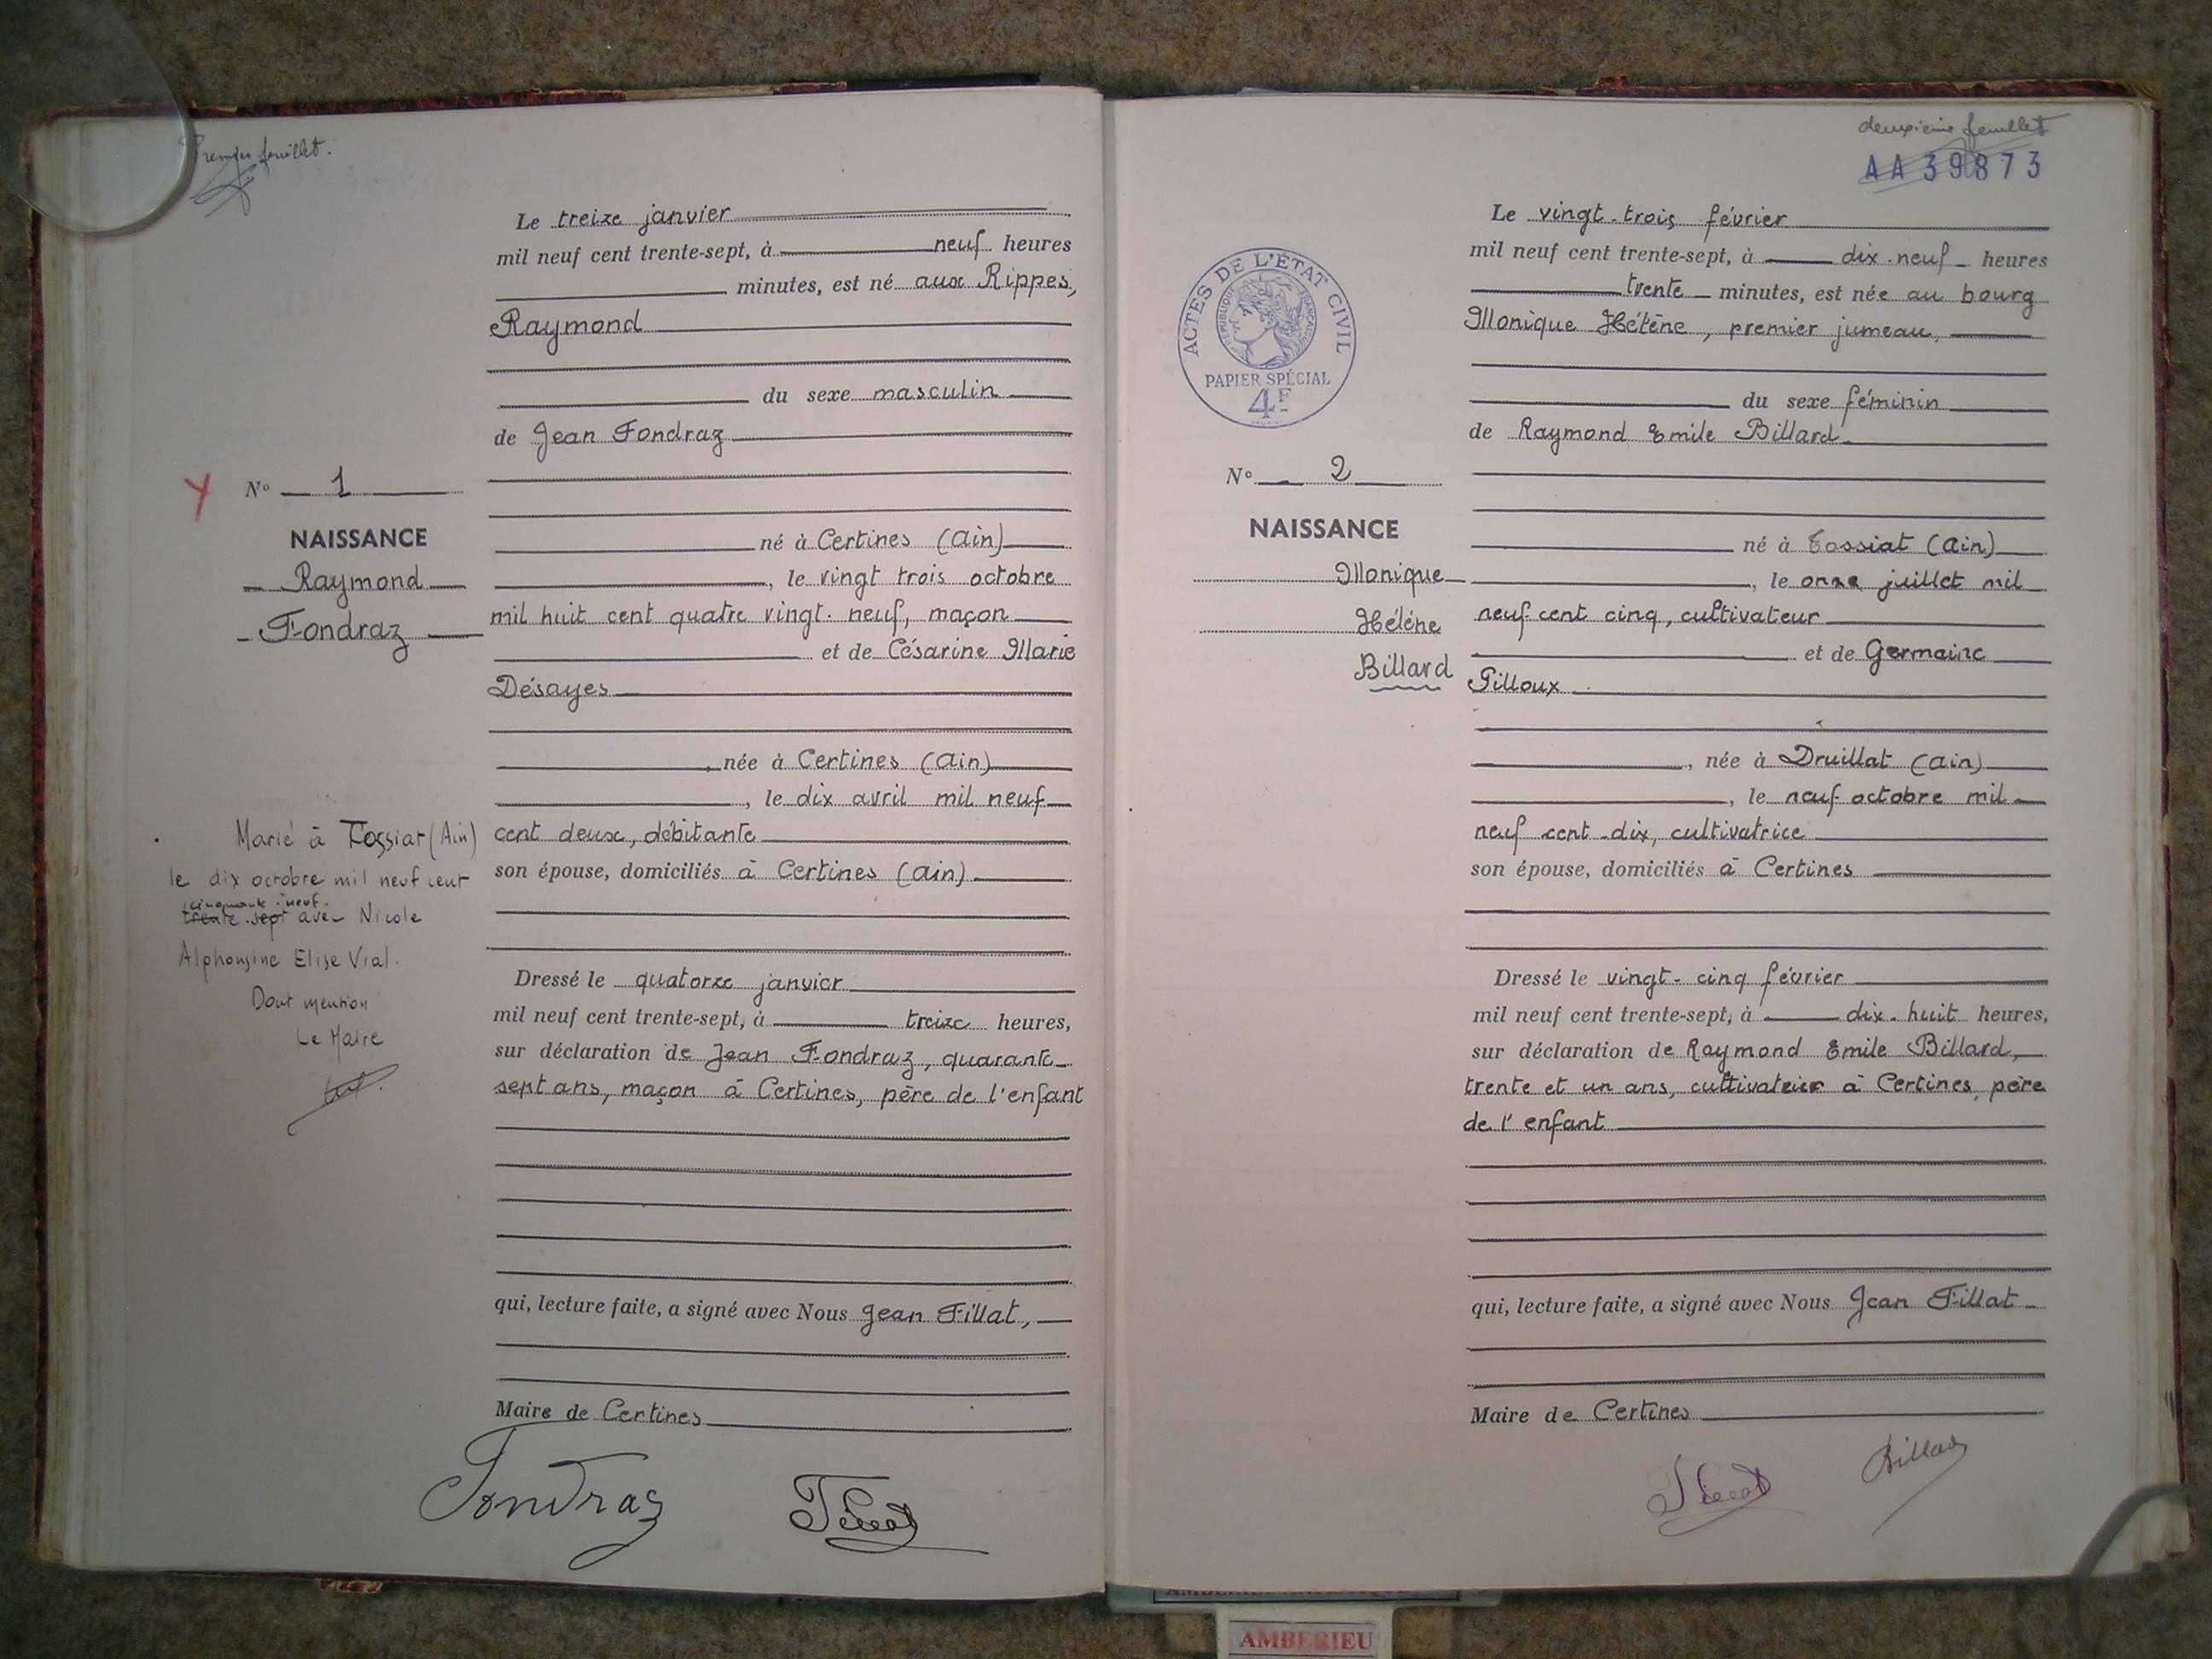 Premier feuillet.
Le treize janvier
mil neuf cent trente-sept, à neuf heures
minutes, est né aux Rippes,
Raymond
du sexe masculin
de Jean Fondraz
N° 1
NAISSANCE
Raymond
Fondraz
né à Certines (Ain)
, le vingt trois octobre
mil huit cent quatre vingt-neuf, maçon
et de Césarine Marie
Désayes
, née à Certines (Ain)
, le dix avril mil neuf
cent deux, débitante
son épouse, domiciliés à Certines (Ain)
Marié à Tossiat (Ain)
le dix octobre mil neuf cent
cinquante-neuf
trente-sept avec Nicole
Alphonsine Elise Vial.
Dont mention
Le Maire
Dressé le quatorze janvier
mil neuf cent trente-sept, à treize heures,
sur déclaration de Jean Fondraz, quarante-
sept ans, maçon à Certines, père de l'enfant
qui, lecture faite, a signé avec Nous Jean Fillat,
Maire de Certines
Fondraz Fillat
deuxième feuillet
AA39873
ACTES DE L'ÉTAT CIVIL
RÉPUBLIQUE FRANÇAISE
PAPIER SPÉCIAL
4F
Le vingt-trois février
mil neuf cent trente-sept, à dix-neuf heures
trente minutes, est née au bourg
Monique Hélène, premier jumeau,
du sexe féminin
de Raymond Emile Billard
N° 2
NAISSANCE
Monique
Hélène
Billard
né à Tossiat (Ain)
, le onze juillet mil
neuf cent cinq, cultivateur
et de Germaine
Pilloux
, née à Druillat (Ain)
, le neuf octobre mil
neuf cent dix, cultivatrice
son épouse, domiciliés à Certines
Dressé le vingt-cinq février
mil neuf cent trente-sept, à dix-huit heures,
sur déclaration de Raymond Emile Billard,
trente et un ans, cultivateur à Certines, père
de l'enfant
qui, lecture faite, a signé avec Nous Jean Fillat
Maire de Certines
Fillat Billard
AMBERIEU